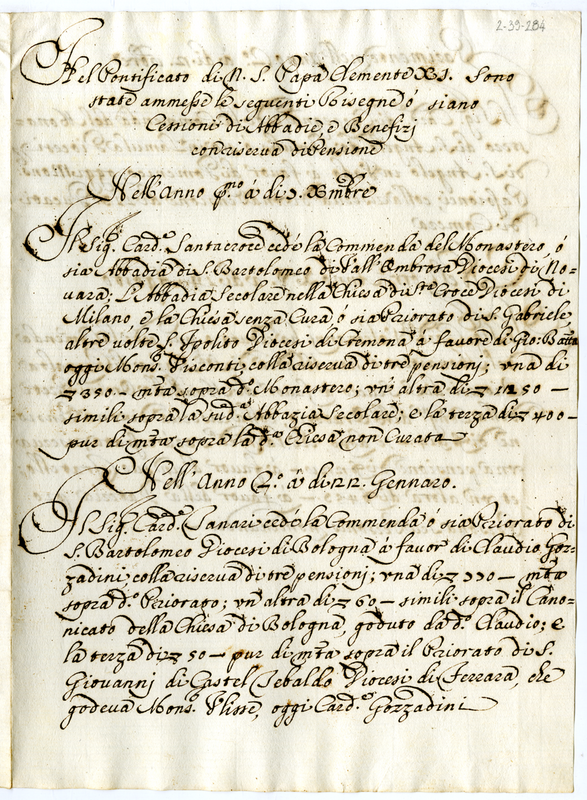 2-39-284
Nel Pontificato di N. S. Papa Clemente XI. Sono
state ammesse le seguenti Risegne ó siano
Cessioni di Abbadie, e Benefizj
con riserva di Pensione
Nell'Anno p.mo á di 3. Xmbre
Il Sig. Card. Santacroce cedé la Commenda del Monastero, ó
sia Abbadia di S. Bartolomeo di Vall'Ombrosa Diocesi di No=
vara; L'Abbadia Secolare nella Chiesa di S.ta Croce Diocesi di
Milano, e la Chiesa senza Cura, ó sia Priorato di S. Gabriele,
altre volte S. Ipolito Diocesi di Cremona á favore di Gio: Batta
oggi Mons. Visconti, colla riserva di tre pensionj; una di
350 - mta sopra d.o Monastero; un'altra di 1250 -
simili sopra la sud.a Abbazia Secolare; e la terza di 400 -
pur di mta sopra la d.a Chiesa non Curata
Nell'Anno 2.o á di 22. Gennaro.
Il Sig. Card. Tanari cedé la Commenda ó sia Priorato di
S. Bartolomeo Diocesi di Bologna á favor di Claudio Goz=
zadini colla riserva di tre pensionj; una di 330 - mta
sopra d.o Priorato; un'altra di 60 - simili sopra il Cano=
nicato della Chiesa di Bologna, goduto da d.o Claudio; e
la terza di 50 - pur di mta sopra il Priorato di S.
Giovannj di Castel Tebaldo Diocesi di Ferrara, che
godeva Mons. Ulisse, oggi Card. Gozzadini